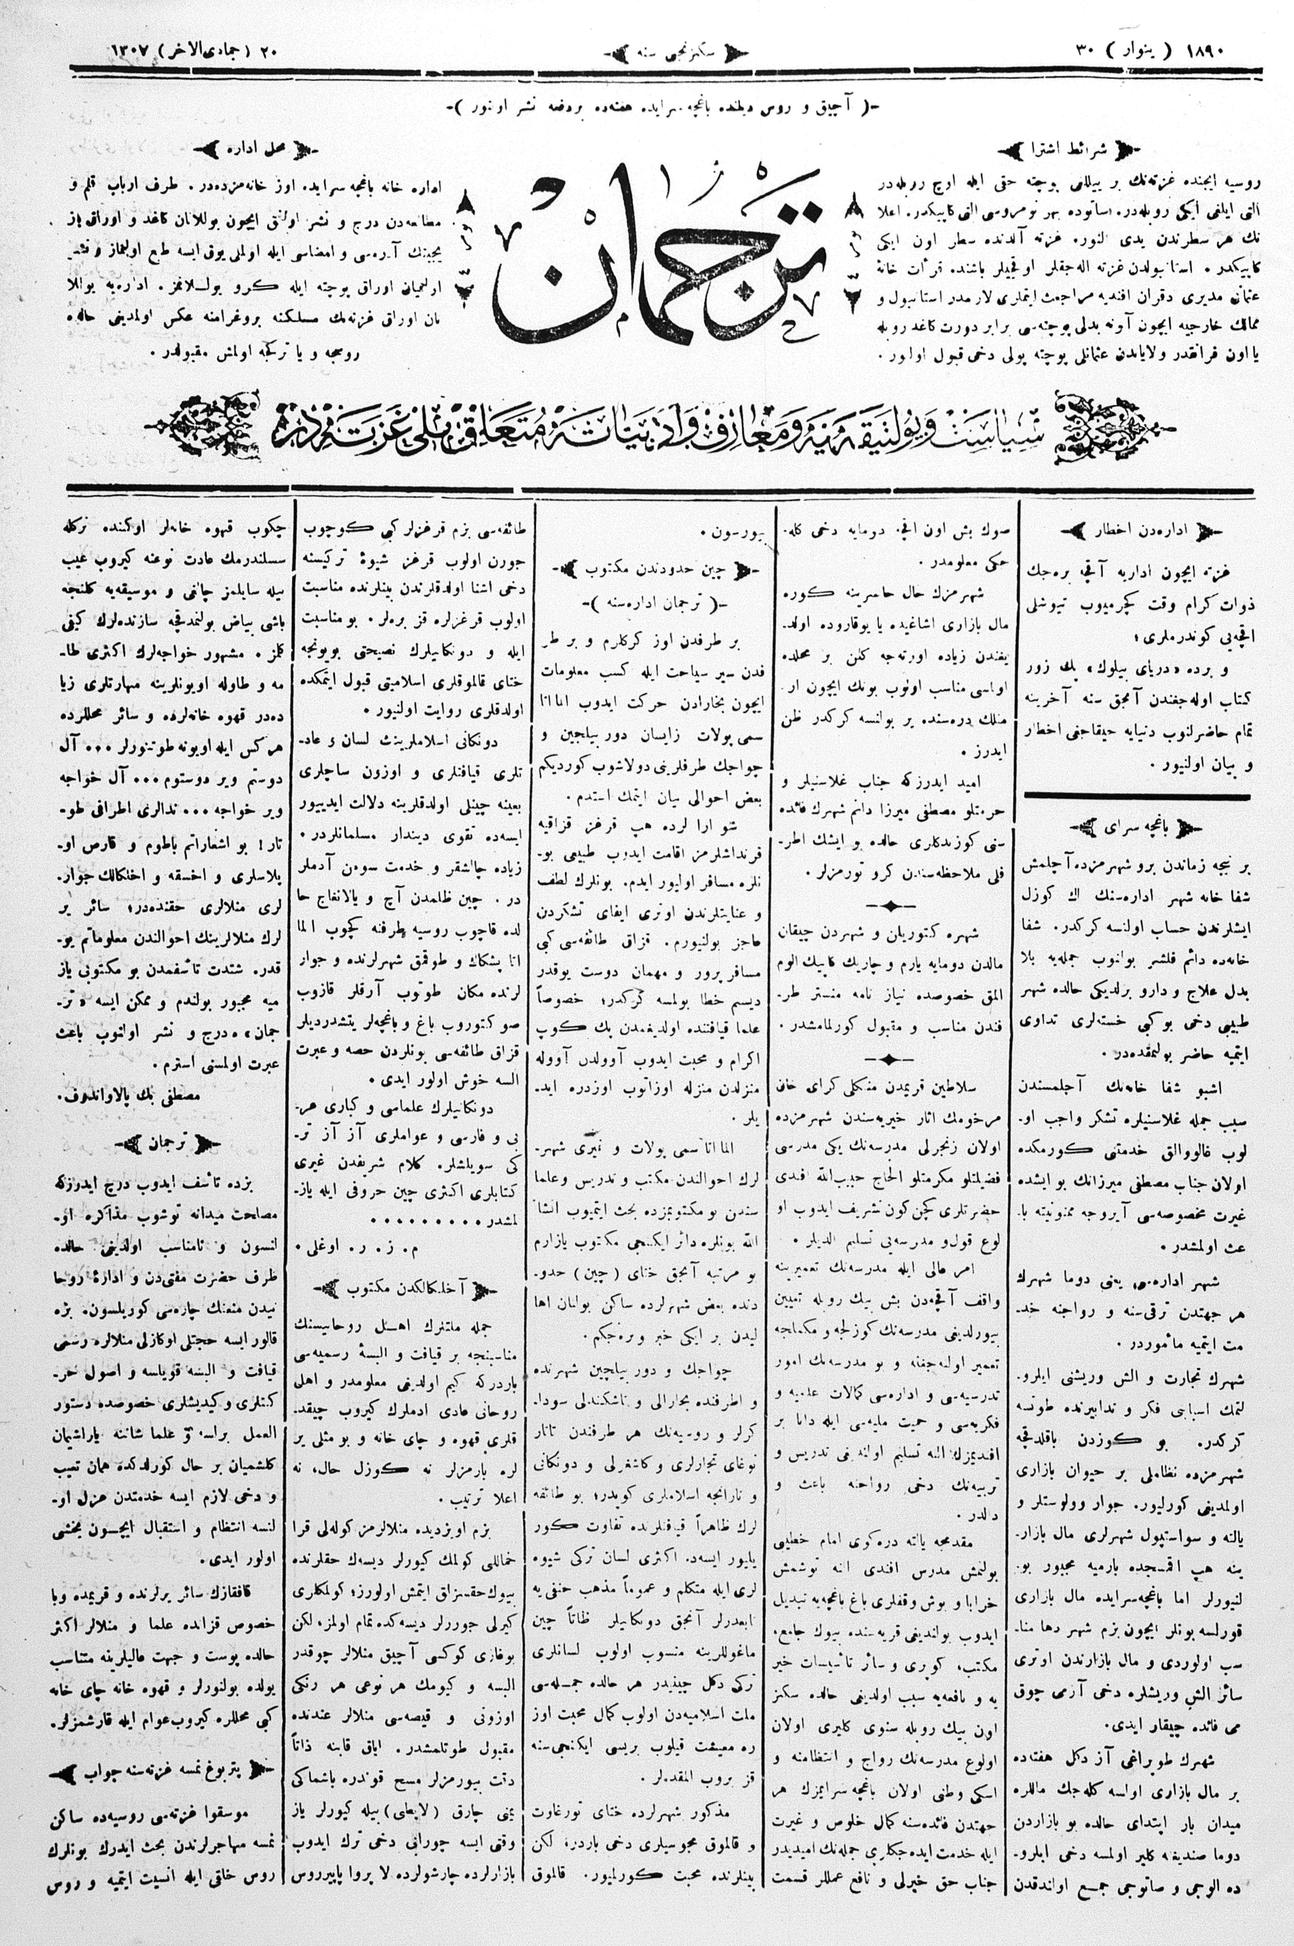 ١٨٩٠ ( ینوار ) ٣٠
سكزنجی سنه
٢٠ ( جمادی الاخر ) ١٣٠٧
-( آچیق و روس دیلنده باغچه سرایده هفته‌ده بر دفعه نشر اولنور )-
شرائط اشترا
روسیه ایچنده غزته‌نك بر ییللق پوچته حقی ایله اوچ روبله‌در
التی ایلغی ایكی روبله‌در. صاتوده بهر نومروسی التی كاپیكدر. اعلا
نك هر سطرندن یدی النور. غزته آلدنده سطر اون ایكی
كاپیكدر. استانبولدن غزته اله‌جقلر اوقجیلر باشنده قرأت خانۀ
عثمان مدیری دقران افندیه مراجعت ایتملری لازمدر استانبول و
ممالك خارجیه ایچون آبونه بدلی پوچته‌سی برابر دورت كاغد روبله
یا اون فرانقدر ولایاتدن عثمانلی پوچته پولی دخی قبول اولور.
ترجمان
١٣٠٠
محل اداره
اداره خانه باغچه سرایده اوز خانه‌مزده‌در. طرف ارباب قلم و
مطالعه‌دن درج و نشر اولنمق ایچون یوللانان كاغد و اوراق یاز
یجینك آدره‌سی و امضاسی ایله اولملی یوق ایسه طبع اولنماز و نشر
اولنمیان اوراق پوچته ایله كرو یوللانمز. اداره‌یه یوللا
نان اوراق غزته‌نك مسلكنه پروغرامنه عكس اولمدیغی حالده
روسجه و یا تركجه اولمش مقبولدر.
سیاست و پولتیقه‌یه و معارف و ادبیاته متعلق ملی غزته‌مزدر
اداره‌دن اخطار
غزته ایچون اداریه آقچه بره‌جك
ذوات كرام وقت كچرمیوب تیوشلی
اقچه‌یی كوندرملری؛
و برده «دریای بیلوك» پك زور
كتاب اوله‌جغندن آنجق سنه آخرینه
تمام حاضرلنوب دنیایه چیقاجغی اخطار
و بیان اولنیور.
باغچه سرای
بر نیچه زماندن برو شهرمزده آچلمش
شفا خانه شهر اداره‌سنك اك كوزل
ایشلرندن حساب اولنسه كركدر. شفا
خانه‌ده دائم فلشر بولنوب جمله‌یه بلا
بدل علاج و دارو برلدیكی حالده شهر
طبیبی دخی بو كبی خسته‌لری تداوی
ایتمیه حاضر بولنمقده‌در.
اشبو شفا خانه‌نك آچلمسندن
سبب جمله غلاسنیلره تشكر واجب او-
لوب غالووالق خدمتی كورمكده
اولان جناب مصطفی میرزانك بو ایشده
غیرت مخصوصه‌سی آیروجه ممنونیته با-
عث اولمشدر.
شهر اداره‌سی یعنی دوما شهرك
هر جهتدن ترقی‌سنه و رواجنه خد-
مت ایتمیه مأموردر.
شهرك تجارت و الش وریشنی ایلرو-
لتمك اسبابی فكر و تدابیرنده طوتسه
كركدر. بو كوزدن باقلدقچه
شهرمزده نظاملی بر حیوان بازاری
اولمدیغی كورلیور. جوار وولوستلر و
یالته و سواستپول شهرلری مال بازار-
ینه هپ اقمسجده بارمیه مجبور بو-
لنیورلر اما باغچه‌سرایده مال بازاری
قورلسه بونلر ایچون بزم شهر دها منا-
سب اولوردی و مال بازارندن اوتری
سائر الش وریشلره دخی آزمی چوق
می فائده چیقار ایدی.
شهرك طوپراغی آز دكل هفتاده
بر مال بازاری اولسه كله‌جك ماللره
میدان بار ابتدای حالده بو بازاردن
دوما صندیغنه كلیر اولمسه دخی ایلرو-
ده الوجی و صاتوجی جمع اولندقدن
صوك بش اون اقچه دومایه دخی كله-
جكی معلومدر.
شهرمزك حال حاضرینه كوره
مال بازاری اشاغیده یا یوقاروده اولد-
یغندن زیاده اورته‌جه كلن بر محلده
اولماسی مناسب اولوب بونك ایچون ار-
منلك دره‌سنده یر بولنسه كركدر ظن
ایدرز.
امید ایدرزكه جناب غلاسنیلر و
حرمتلو مصطفی میرزا دائم شهرك فائده
سنی كوزدكلری حالده بو ایشك اطر-
فلی ملاحظه‌سندن كرو تورمزلر.
شهره كتوریلان و شهردن چیقان
مالدن دومایه یارم و چاریك كاپیك الوم
المق خصوصده نیاز نامه منستر طر-
فندن مناسب و مقبول كورلمامشدر.
سلاطین قریمدن منكلی كرای خان
مرحومك اثار خیریه‌سندن شهرمزده
اولان زنجرلی مدرسه‌نك یكی مدرسی
فضیلتلو مكرمتلو الحاج حبیب‌الله افندی
حضرتلری كچن كون تشریف ایدوب او
لوغ قول و مدرسه‌یی تسلیم الدیلر.
امر عالی ایله مدرسه‌نك تعمیرینه
واقف آقچه‌دن بش بیك روبله تعیین
بیورلدیغی مدرسه‌نك كوزلجه و مكملجه
تعمیر اوله‌جغنه و بو مدرسه‌نك امور
تدریسیه‌سی و اداره‌سی كمالات علمیه و
فكریه‌سی و حمیت ملیه‌سی ایله دانا بر
افندیمزك النه تسلیم اولنه‌سی تدریس و
تربیه‌نك دخی رواجنه باعث و
دالدر.
مقدمجه یالته دره‌كوی امام خطیبی
بولنمش مدرس افندی انه توشمش
خرابا و بوش وقفلری باغ باغچه‌یه تبدیل
ایدوب بولندیغی قریه‌سنده بیوك جامع،
مكتب، كوپری و سائر تأسیسات خیر
یه و نافعه‌یه سبب اولدیغی حالده سكز
اون بیك روبله سنوی كلیری اولان
اولوغ مدرسه‌نك رواج و انتظامنه و
اسكی وطنی اولان باغچه سرایمزك هر
جهتدن فائده‌سنه كمال خلوص و غیرت
ایله خدمت ایده‌جكلری جمله‌نك امیدیدر
جناب حق خیرلی و نافع عمللر قسمت
بیورسون.
چین حدودندن مكتوب
-( ترجمان اداره‌سنه )-
بر طرفدن اوز كركلرم و بر طر
فدن سیر سیاحت ایله كسب معلومات
ایچون بخارادن حركت ایدوب الماآتا
سمی‌پولات زایسان دوربیلجین و
چواچك طرفلرینی دولاشوب كوردیكم
بعض احوالی بیان ایتمك استدم.
شو ارالرده هپ قرغز قزاقیه
قرنداشلرمز اقامت ایدوب طبیعی بو-
نلره مسافر اولیور ایدم. بونلرك لطف
و عنایتلرندن اوتری ایفای تشكردن
عاجز بولنیورم. قزاق طائفه‌سی كبی
مسافرپرور و مهمان دوست یوقدر
دیسم خطا بولمسه كركدر؛ خصوصاً
علما قیافتنده اولدیغمدن پك كوپ
اكرام و محبت ایدوب آوولدن آووله
منزلدن منزله اوزاتوب اوزدره اید-
یلر.
الماآتا سمی پولات و غیری شهر-
لرك احوالندن مكتب و تدریس و علما
سندن بو مكتوبمزده بحث ایتمیوب انشا
الله بونلره دائر ایكنجی مكتوب یازارم
بو مرتبه آنجق ختای (چین) حدو-
دنده بعض شهرلرده ساكن بولنان اها
لیدن بر ایكی خبر ویره‌جكم.
چواچك و دوربیلجین شهرنده
و اطرفنده بخارالی و تاشكندلی سودا-
كرلر و روسیه‌نك هر طرفندن تاتار
نوغای تجارلری و كاشغرلی و دونكانی
و تارانچه اسلاملری كوبدر؛ بو طائفه
لرك ظاهراً قیافتلرنده تفاوت كور
یلیور ایسه‌ده اكثری لسان تركی شیوه
لری ایله متكلم و عموماً مذهب حنفی یه
تابعدرلر آنجق دونكانیلر ظاتاً چین
ماغوللرینه منسوب اولوب لسانلری
تركی دكل چینیدر هر حالده جمله‌سی
ملت اسلامیه‌دن اولوب كمال محبت اوز
ره معیشت قیلوب بریسی ایكنجی‌سنه
قز بروب المقده‌لر.
مذكور شهرلرده ختای تورغاوت
و قالموق مجوسیلری دخی باردر؛ لكن
بینلرنده محبت كورلمیور. قالموق
طائفه‌سی بزم قرغزلر كبی كوچوب
جورن اولوب قرغز شیوۀ تركیسنه
دخی اشنا اولدقلرندن بینلرنده مناسبت
اولوب قرغزلره قز بره‌لر. بو مناسبت
ایله و دونكانیلرك نصیحتی بوینجه
ختای قالموقلری اسلامیتی قبول ایتمكده
اولدقلری روایت اولنیور.
دونكانی اسلاملرینك لسان و عاد-
تلری قیافتلری و اوزون ساچلری
بعینه چینلی اولدقلرینه دلالت ایدییور
ایسه‌ده تقوی دیندار مسلمانلردر.
زیاده چالشقر و خدمت سوه‌ن آدملر
در. چین ظالمدن آچ و یالانغاچ حا
لده قاچوب روسیه طرفنه كچوب الما
اتا پشكاك و طوقمق شهرلرنده و جوار
لرنده مكان طوتوب آرقلر قازوب
صو كتوروب باغ و باغچه‌لر یتشدردیلر
قزاق طائفه‌سی بونلردن حصه و عبرت
السه خوش اولور ایدی.
دونكانیلرك علماسی و كباری عر-
بی و فارسی و عواملری آز آز تر-
كی سویلشلر. كلام شریفدن غیری
كتابلری اكثری چین حروفی ایله یاز-
لمشدر.........
م. ز. ر. اوغلی.
آخلكالكدن مكتوب
جمله ملتنرك اهل روحانیسنك
مناسبنجه بر قیافت و البسۀ رسمیه‌سی
باردركه كیم اولدیغی معلومدر و اهل
روحانی عادی ادملرك كیروب چیقد-
قلری قهوه و چای خانه و بو مثلی یر
لره بارمزلر نه كوزل حال، نه
اعلا ترتیب.
بزم اویزدیده منلالرمز كوله‌لی قرا
خماللی كولمك كیورلر دیسه‌ك حقلرنده
بیوك حقسزلق ایتمش اولورز؛ كولمكلری
كیرلی جوررلر دیسه‌كده تمام اولمز، لكن
یوقاری كوكسی آچیق منلالر چوقدر
البسه و كیومك هر نوعی هر رنكی
اوزونی و قیصه‌سی منلالر عندنده
مقبول طوتلمشدر. ایاق قابنه ذاتاً
دقت بیورمزلر مسح قوندره باشماكی
یمنی چارق (لابطی) بیله كیورلر یاز
وقتی ایسه چورابی دخی ترك ایدوب
بازارلرده چارشولرده لا پروا پاپیروس
چكوب قهوه خانه‌لر اوكننده نركله
سسلندرمك عادت نوعنه كیروب عیب
بیله سایلمز چالغی و موسیقه‌یه كلنجه
باشی بیاض بولندقچه سازنده‌لرك كیفی
كلمز. مشهور خواجه‌لرك اكثری طا-
مه و طاوله اویونلرینه مهارتلری زیا
ده‌در قهوه خانه‌لرده و سائر محللرده
هر كس ایله اویونه طوتنورلر... آل
دوستم ویر دوستوم... آل خواجه
ویر خواجه... ندالری اطرافی طو-
تار! بو اشعاراتم باطوم و قارص او-
یلاسلری و اخسقه و اخلكالك جوار-
لری منلالری حقنده‌در؛ سائر یر
لرك منلالرینك احوالندن معلوماتم یو-
قدر. شدت تأسفمدن بو مكتوبی یاز
میه مجبور بولندم و ممكن ایسه «تر-
جمان» ه درج و نشر اولنوب باعث
عبرت اولمسنی استرم.
مصطفی بك پالاواندوف.
ترجمان
بزده تأسف ایدوب درج ایدرزكه
مصلحت میدانه توشوب مذاكره او-
لنسون و نامناسب اولدیغی حالده
طرف حضرت مفتی‌دن و ادارۀ روحا
نیدن منعنك چاره‌سی كوریلسون. بزه
قالور ایسه حجتلی اوكازلی منلالره رسمی
قیافت و البسه قویاسه و اصول حر-
كتلری و كیدیشلری خصوصده دستور
العمل براسه و علما شاننه یاراشمیان
كلشمیان بر حال كورلدكده همان تعیب
و دخی لازم ایسه خدمتدن عزل او-
لنسه انتظام و استقبال ایچسون یخشی
اولور ایدی.
قافقازك سائر یرلرنده و قریمده و با
خصوص قزانده علما و منلالر اكثر
حالده پوست و جبهت عالیلرینه متناسب
یولده بولنورلر و قهوه خانه چای خانه
كبی محللره كیروب عوام ایله قارشمزلر.
پتربوغ نمسه غزته‌سنه جواب
موسقوا غزته‌سی روسیه‌ده ساكن
نمسه مهاجرلرندن بحث ایدرك بونلرك
روس خلقی ایله انسیت ایتمیه و روس